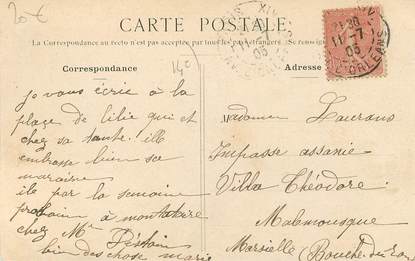 20 €
14c
CARTE POSTALE
La Correspondance au recto n'est pas acceptée par tous les pays étrangers. Se renseigner
Correspondance
Adresse
21 30
11-7
05
ORLEANS
je vous écrie à la
plage de lilie qui et
chez sa tante. ille
embrasse bien sa
maraine
ile par la semaine
prochain à montataire
chez Mme
bien des chose marie
Madame Laurans
Impasse assanie
Villa Théodore
Malmousque
Marseille (Bouche du